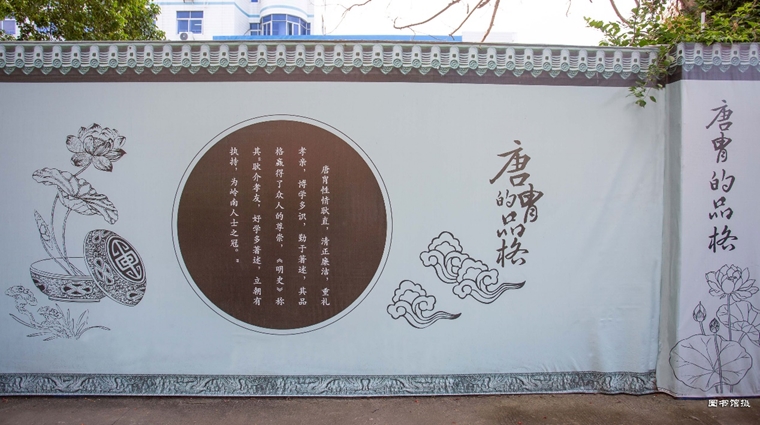 唐胄的品格
唐胄的品格
唐胄性情耿直，清正廉洁，重礼
孝亲，博学多识，勤于著述，其品
格赢得了众人的尊崇，《明史》称
其“耿介孝友，好学多著述，立朝有
执持，为岭南人士之冠。”
图书馆摄